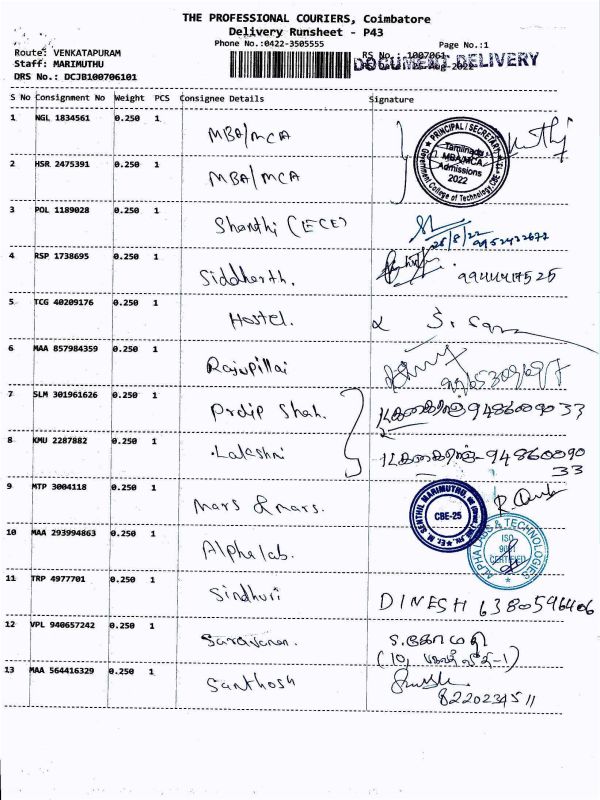 THE PROFESSIONAL COURIERS, Coimbatore
Delivery Runsheet - P43
Phone No.:0422-3505555
Page No.:1
Route: VENKATAPURAM
Staff: MARIMUTHU
DRS No.: DCJB100706101
DOCUMENT DELIVERY
S No Consignment No Weight PCS Consignee Details Signature
1 NGL 1834561 0.250 1 MBA/MCA
PRINCIPAL / SECRETARY
Tamilnadu
MBA/MCA
Admissions
2022
Government College of Technology, CBE - 13
2 HSR 2475391 0.250 1 MBA/MCA
3 POL 1189028 0.250 1 Shanthi (ECE)
25/8/22
4 RSP 1738695 0.250 1 Siddharth. 9944417525
5 TCG 40209176 0.250 1 Hostel.
6 MAA 857984359 0.250 1 Rajupillai
7 SLM 301961626 0.250 1 Prdip Shah. 9486009033
8 KMU 2287882 0.250 1 Lakshmi 9486009033
9 MTP 3004118 0.250 1 Mars & mars.
CBE-25
10 MAA 293994863 0.250 1 Alpha lab.
ALPHA LABS & TECHNOLOGIES
ISO
9001
CERTIFIED
11 TRP 4977701 0.250 1 Sindhuri DINESH 6380596406
12 VPL 940657242 0.250 1 Saravanan.
13 MAA 564416329 0.250 1 Santhosh
8220234511